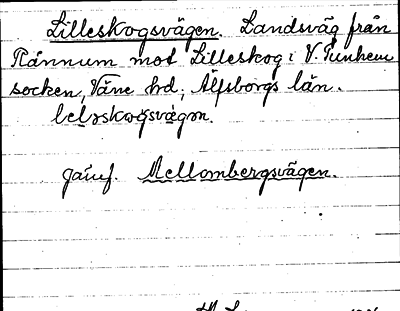 Lilleskogsvägen. Landsväg från
Rånnum mot Lilleskog i V. Tunhem
socken, Väne hd, Älfsborgs län.
jämf. Mellombergsvägen.